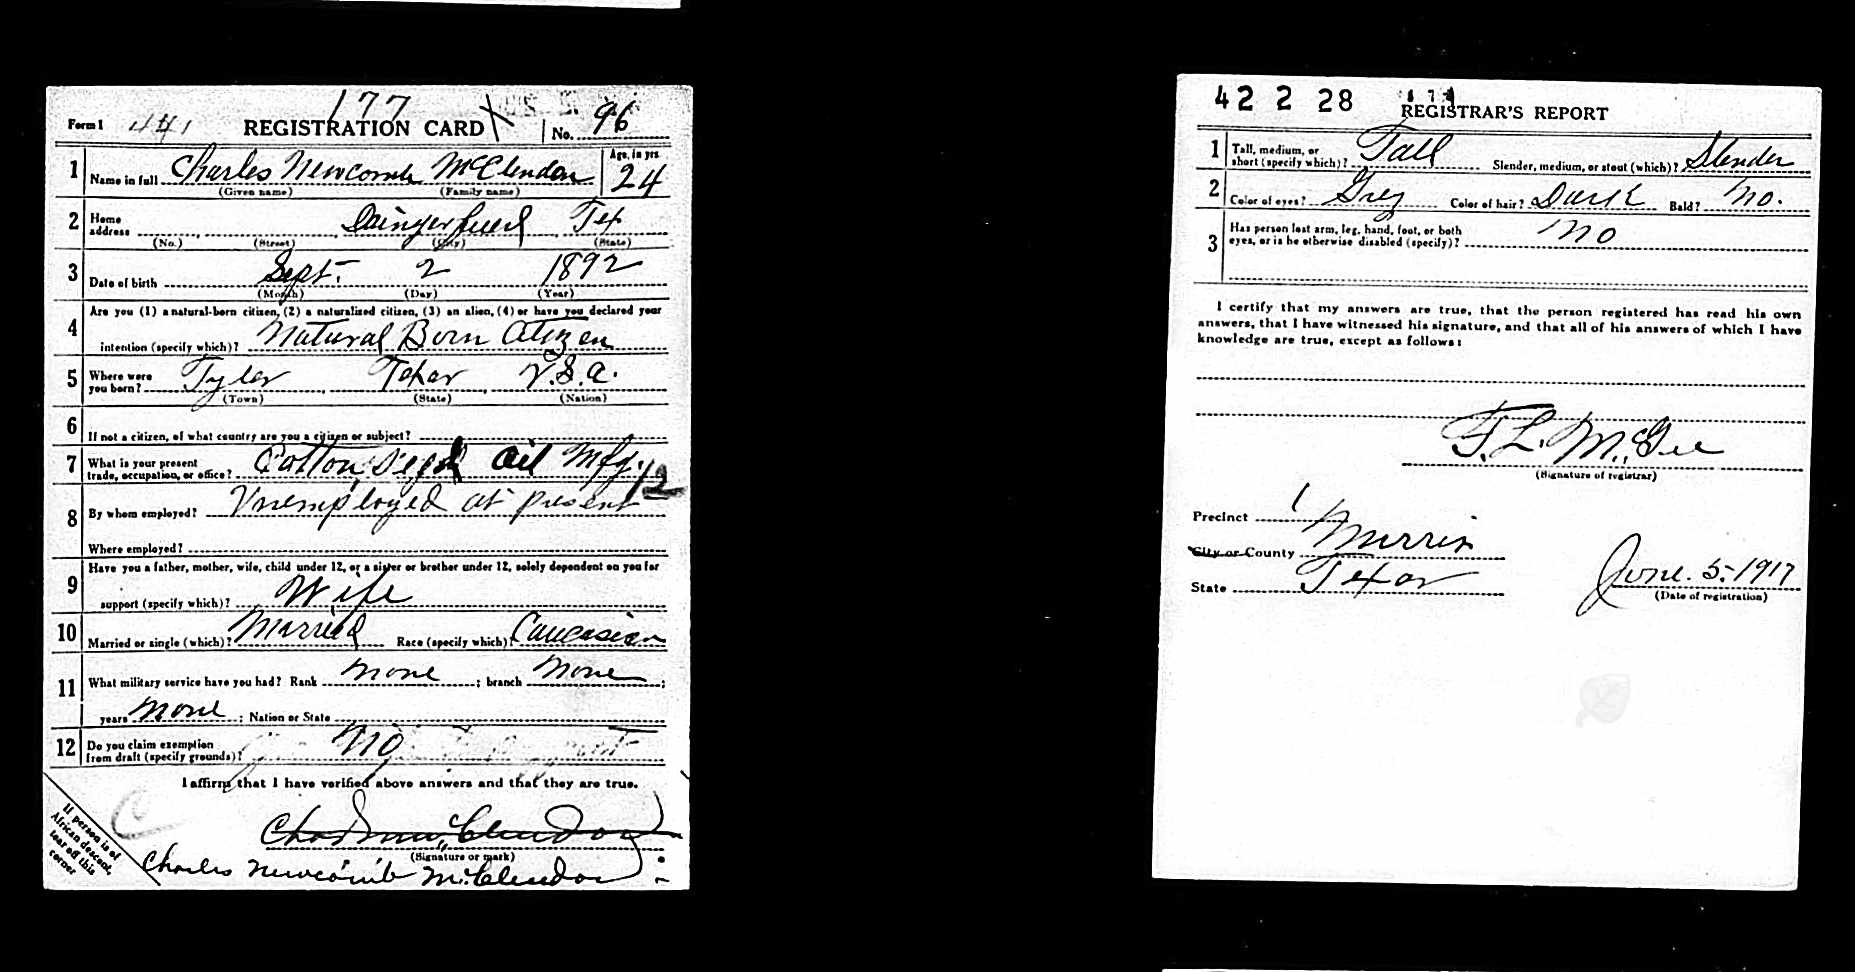 177
Form 1 441 REGISTRATION CARD No. 96
1 Name in full Charles Newcomb McClendon Age, in yrs. 24
(Given name) (Family name)
2 Home address Daingerfield Tex
(No.) (Street) (City) (State)
3 Date of birth Sept. 2 1892
(Month) (Day) (Year)
4 Are you (1) a natural-born citizen, (2) a naturalized citizen, (3) an alien, (4) or have you declared your
intention (specify which)? Natural Born Citizen
5 Where were you born? Tyler Texas U.S.a.
(Town) (State) (Nation)
6 If not a citizen, of what country are you a citizen or subject?
7 What is your present
trade, occupation, or office? Cotton Seed Oil Mfg. 12
8 By whom employed? Unemployed at present
Where employed?
9 Have you a father, mother, wife, child under 12, or a sister or brother under 12, solely dependent on you for
support (specify which)? Wife
10 Married or single (which)? Married Race (specify which)? Caucasian
11 What military service have you had? Rank None ; branch None ;
years None ; Nation or State
12 Do you claim exemption
from draft (specify grounds)? No
I affirm that I have verified above answers and that they are true.
If person is of
African descent,
tear off this
corner
(Signature or mark)
Charles Newcomb McClendon
42 2 28
REGISTRAR'S REPORT
1 Tall, medium, or
short (specify which)? Tall Slender, medium, or stout (which)? Slender
2 Color of eyes? Grey Color of hair? Dark Bald? No.
3 Has person lost arm, leg, hand, foot, or both
eyes, or is he otherwise disabled (specify)? No
I certify that my answers are true, that the person registered has read his own
answers, that I have witnessed his signature, and that all of his answers of which I have
knowledge are true, except as follows:
F. L. McGee
(Signature of registrar)
Precinct 1
City or County Morris
State Texas
June. 5. 1917
(Date of registration)